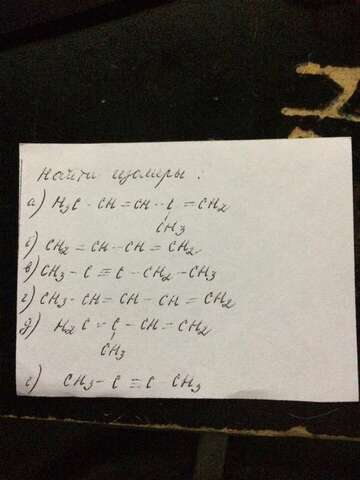 Найти изомеры:
а) H₃C - CH = CH - C = CH₂
CH₃
б) CH₂ = CH - CH = CH₂
в) CH₃ - C ≡ C - CH₂ - CH₃
г) CH₃ - CH = CH - CH = CH₂
д) H₂C = C - CH = CH₂
CH₃
е) CH₃ - C ≡ C - CH₃